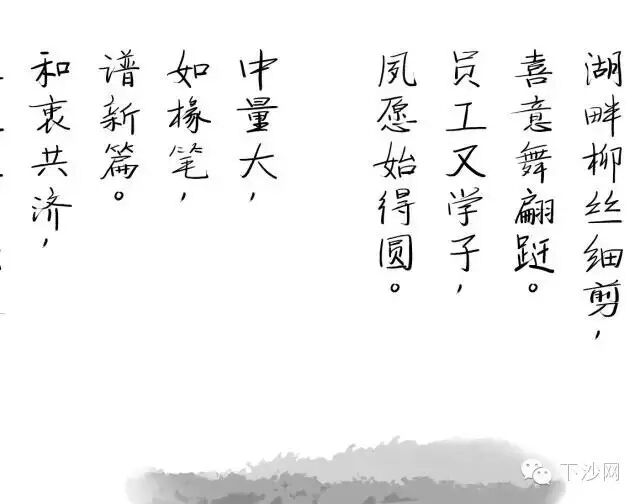 湖畔柳丝细剪，
喜意舞翩跹。
员工又学子，
夙愿始得圆。
中量大，
如椽笔，
谱新篇。
和衷共济，
下沙网